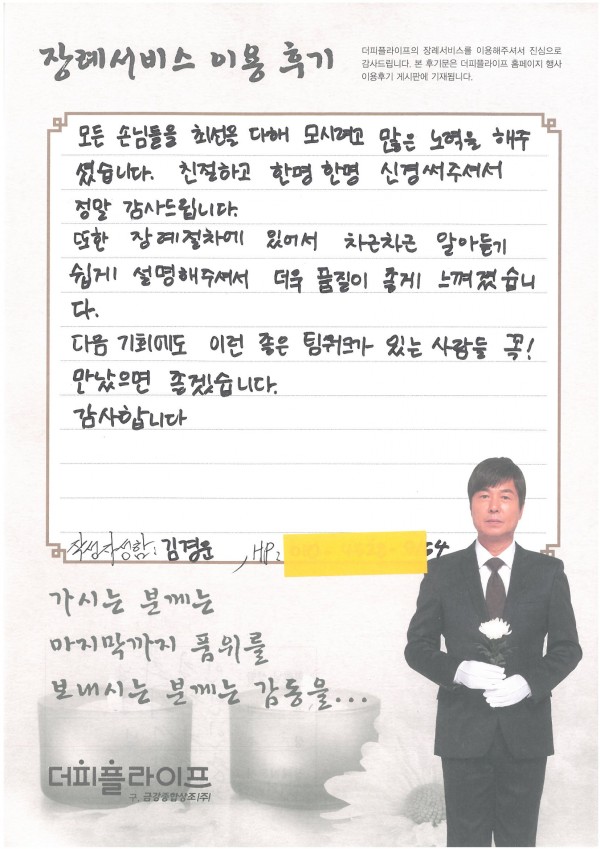 장례서비스 이용 후기
더피플라이프의 장례서비스를 이용해주셔서 진심으로
감사드립니다. 본 후기문은 더피플라이프 홈페이지 행사
이용후기 게시판에 기재됩니다.
모든 손님들을 최선을 다해 모시려고 많은 노력을 해주
셨습니다. 친절하고 한명 한명 신경써주셔서
정말 감사드립니다.
또한 장례절차에 있어서 차근차근 알아듣기
쉽게 설명해주셔서 더욱 품질이 좋게 느껴졌습니
다.
다음 기회에도 이런 좋은 팀워크가 있는 사람들 꼭!
만났으면 좋겠습니다.
감사합니다
작성자성함: 김경운 , HP: 54
가시는 분께는
마지막까지 품위를
보내시는 분께는 감동을...
더피플라이프
구. 금강종합상조(주)